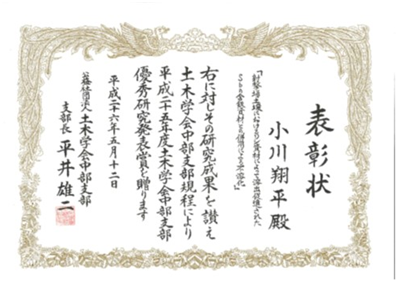 表彰状
小川翔平殿
右に対しその研究成果を讃え
土木学会中部支部規程により
平成二十五年度土木学会中部支部
優秀研究発表賞を贈ります
平成二十六年五月十二日
公益社団法人 土木学会中部支部
支部長 平井雄二